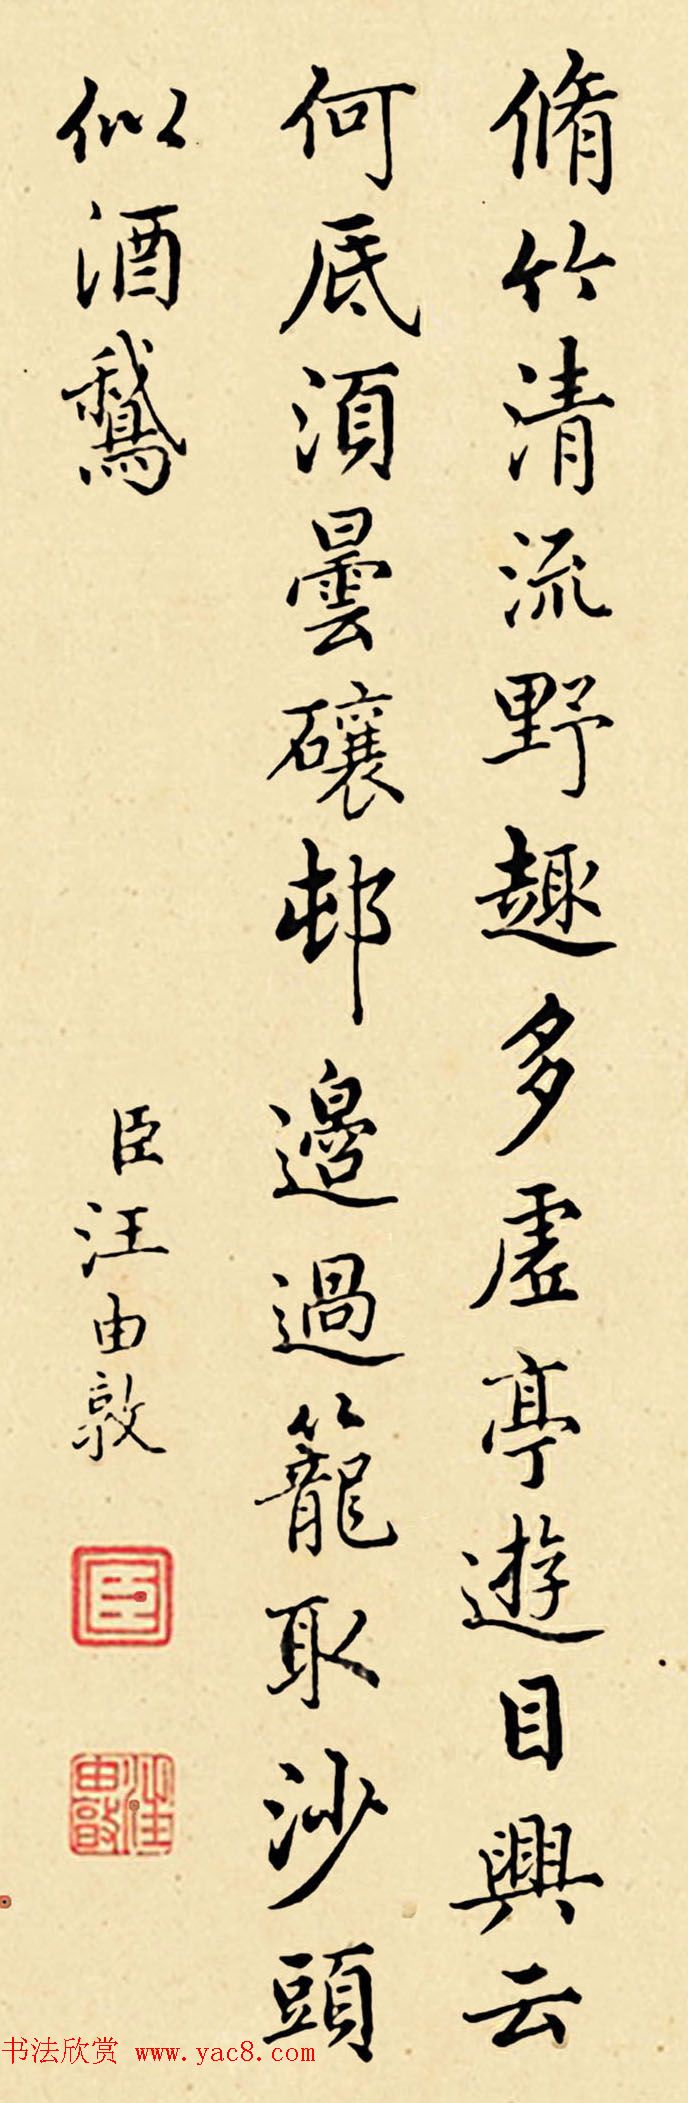 脩竹清流野趣多虛亭遊目興云
何底須曇邨邊過籠取沙頭
似酒鵝
臣汪由敦
臣
汪由敦
书法欣赏 www.yac8.com